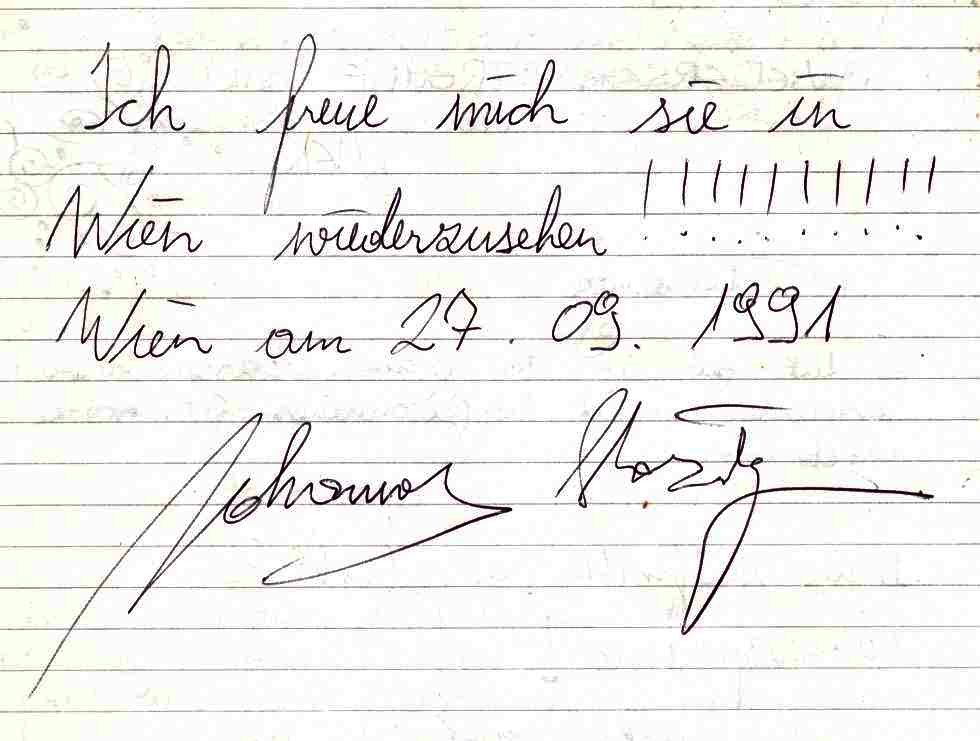 Ich freue mich sie in
Wien wiederzusehen !!!!!!!!!!
Wien am 27. 09. 1991
Johannes